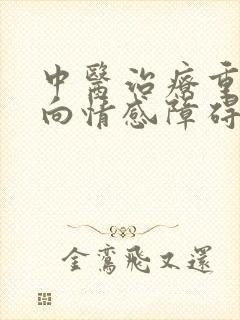 中醫治療重
向情感障碍
金鸞飛又還